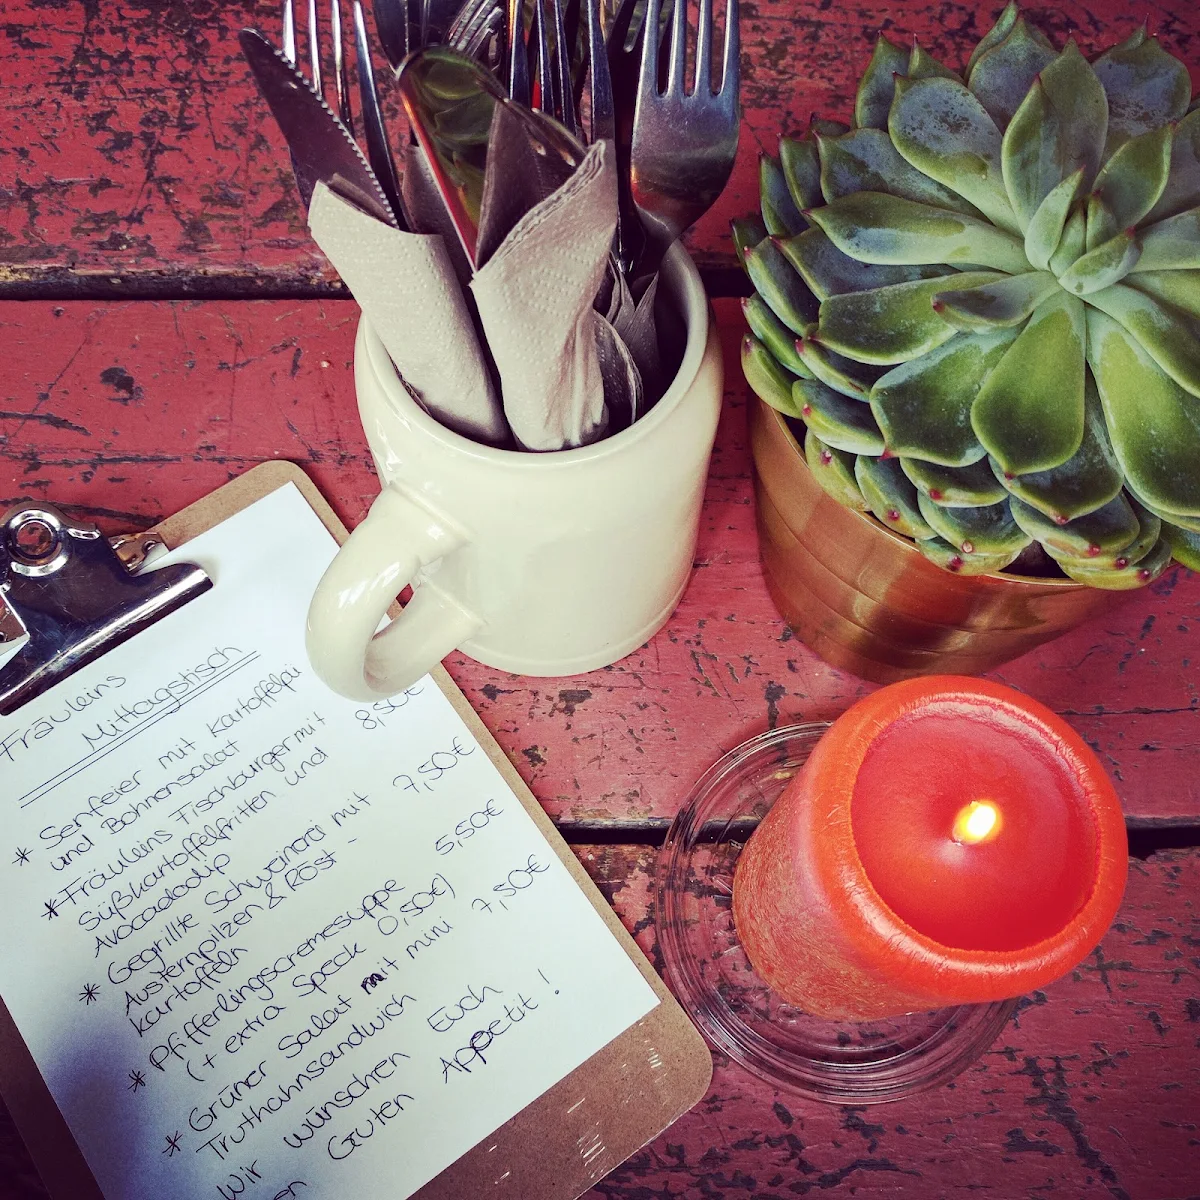 Fräuleins
Mittagstisch
* Senfeier mit Kartoffelpü
und Bohnensalat
* Fräuleins Fischburger mit
Süßkartoffelfritten und 8,50€
Avocadodip
* Gegrillte Schweinerei mit 7,50€
Austernpilzen & Röst-
kartoffeln
* Pfifferlingscremesuppe 5,50€
(+ extra Speck 0,50€)
* Grüner Salat mit mini 7,50€
Truthahnsandwich
Wir wünschen Euch
Guten Appetit !